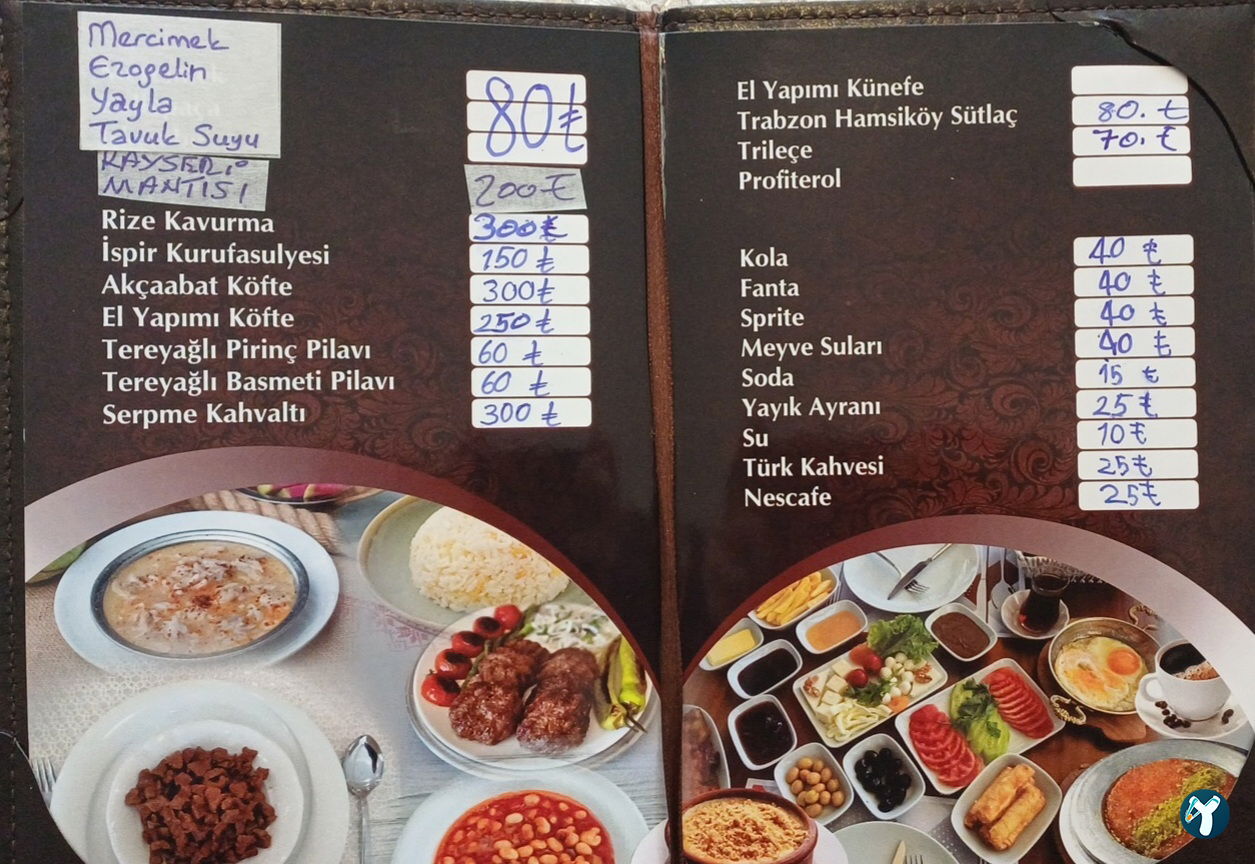 Mercimek
Ezogelin
Yayla
Tavuk Suyu
80₺
KAYSERİ
MANTISI 200₺
Rize Kavurma 300₺
İspir Kurufasulyesi 150 ₺
Akçaabat Köfte 300₺
El Yapımı Köfte 250₺
Tereyağlı Pirinç Pilavı 60 ₺
Tereyağlı Basmeti Pilavı 60 ₺
Serpme Kahvaltı 300 ₺
El Yapımı Künefe
Trabzon Hamsiköy Sütlaç 80. ₺
Trileçe 70. ₺
Profiterol
Kola 40 ₺
Fanta 40 ₺
Sprite 40 ₺
Meyve Suları 40 ₺
Soda 15 ₺
Yayık Ayranı 25 ₺
Su 10₺
Türk Kahvesi 25₺
Nescafe 25₺